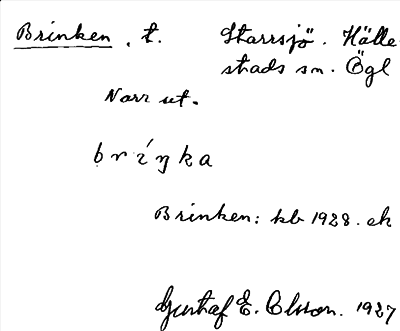 Brinken, t. Starrsjö. Hälle-
stads sn. Ögl
Norr ut.
bríŋka
Brinken: kb 1928. ek
Gustaf E. Olsson. 1927